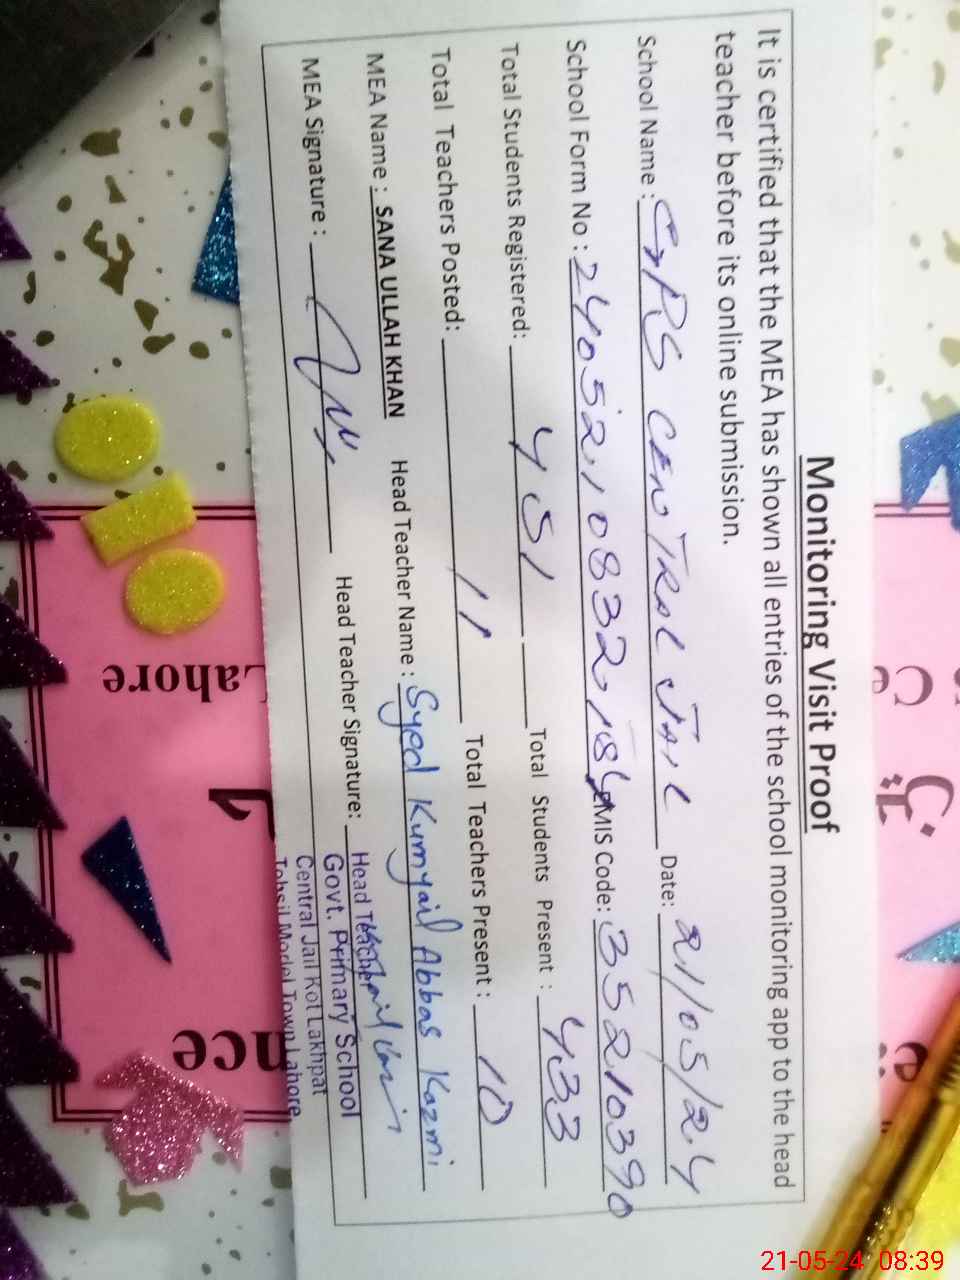 Monitoring Visit Proof
It is certified that the MEA has shown all entries of the school monitoring app to the head
teacher before its online submission.
School Name : GPS CENTRAL JAIL Date: 21/05/24
School Form No : 24052108321 EMIS Code: 35210390
Total Students Registered: 451 Total Students Present : 433
Total Teachers Posted: 11 Total Teachers Present : 10
MEA Name : SANA ULLAH KHAN Head Teacher Name : Syed Kumyail Abbas Kazmi
MEA Signature : Head Teacher Signature:
Head Teacher
Govt. Primary School
Central Jail Kot Lakhpat
Tehsil Model Town Lahore
Lahore
21-05-24 08:39